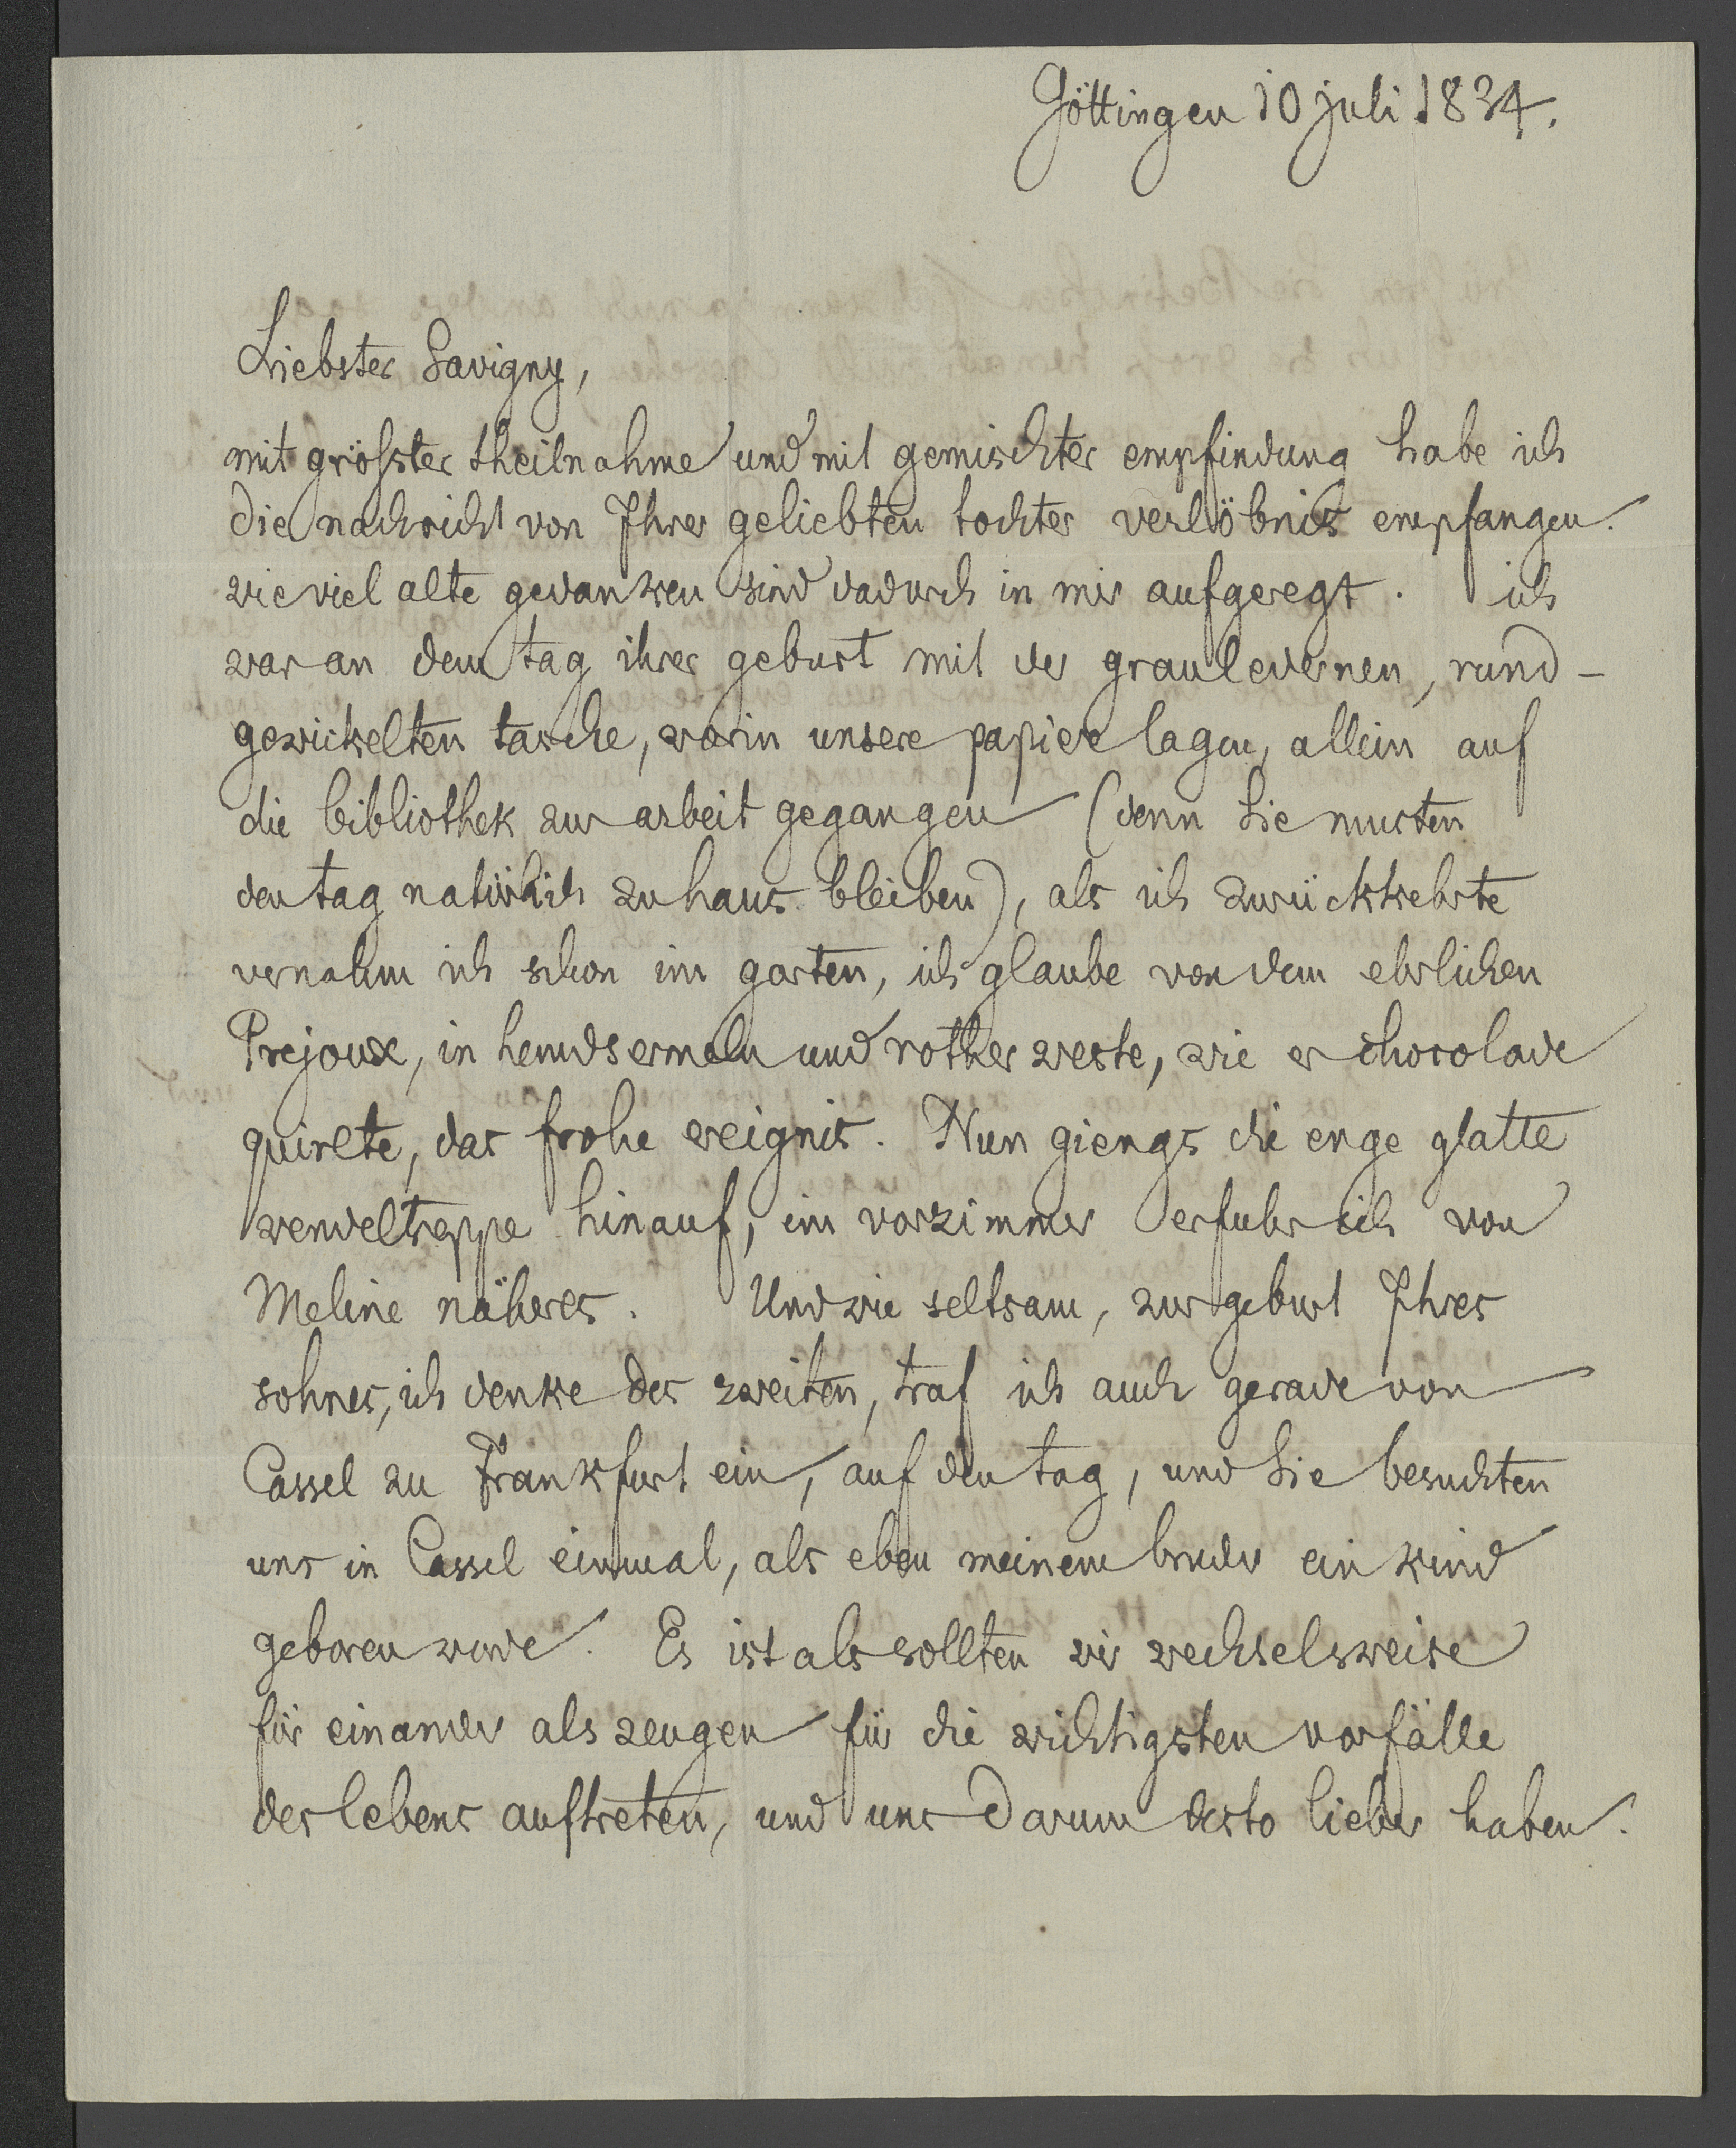 Göttingen 10 juli 1834.
Liebster Savigny,
mit gröfster theilnahme und mit gemischter empfindung habe ich
die nachricht von Ihrer geliebten tochter verlöbnis empfangen.
wie viel alte gedanken sind dadurch in mir aufgeregt. ich
war an dem tag ihrer geburt mit der grauledernen, rund-
gewickelten tasche, worin unsere papiere lagen, allein auf
die bibliothek zur arbeit gegangen (denn Sie musten
den tag natürlich zu haus bleiben), als ich zurückkehrte
vernahm ich schon im garten, ich glaube von dem ehrlichen
Prejoux, in hemdsermeln und rother weste, wie er chocolade
quirlte, das frohe ereignis. Nun giengs die enge glatte
wendeltreppe hinauf, im vorzimmer erfuhr ich von
Meline näheres. Und wie seltsam, zur geburt Ihres
sohnes, ich denke des zweiten, traf ich auch gerade von
Cassel zu Frankfurt ein, auf den tag, und Sie besuchten
uns in Cassel einmal, als eben meinem bruder ein kind
geboren wurde. Es ist als sollten wir wechselsweise
für einander als zeugen für die wichtigsten vorfälle
des lebens auftreten, und uns darum desto lieber haben.